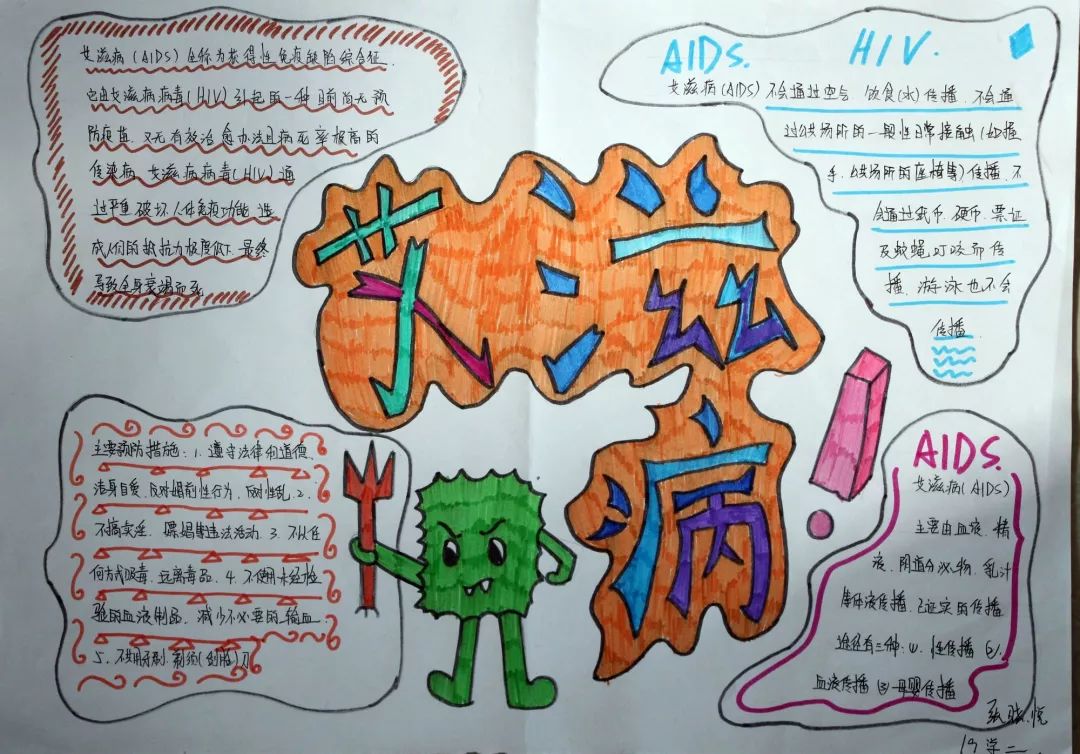 艾滋病(AIDS)全称为获得性免疫缺陷综合征.
它由艾滋病病毒(HIV)引起的一种目前尚无预
防疫苗.又无有效治愈办法且病死率极高的
传染病.艾滋病病毒(HIV)通
过严重破坏人体免疫功能.造
成人们的抵抗力极度低下.最终
导致全身衰竭而死
AIDS. HIV.
艾滋病(AIDS)不会通过空气 饮食(水)传播.不会通
过公共场所的一般性日常接触(如握
手.公共场所的座椅等)传播.不
会通过纸币.硬币.票证
及蚊蝇叮咬而传
播.游泳也不会
传播.
艾滋
病
主要预防措施:1.遵守法律和道德.
洁身自爱.反对婚前性行为.反对性乱.2.
不搞卖淫.嫖娼等违法活动.3.不以任
何方式吸毒.远离毒品.4.不使用未经检
验的血液制品.减少不必要的输血
5.不共用牙刷.剃须(刮脸)刀
AIDS.
艾滋病(AIDS)
主要由血液.精
液.阴道分泌物.乳汁
等体液传播.已证实的传播
途径有三种:(1).性传播 (2).
血液传播 (3)母婴传播